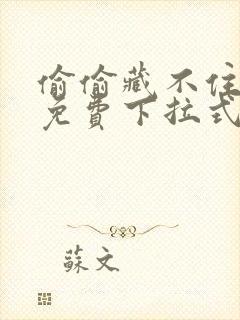 偷偷藏不住
免費下拉式
蘇文